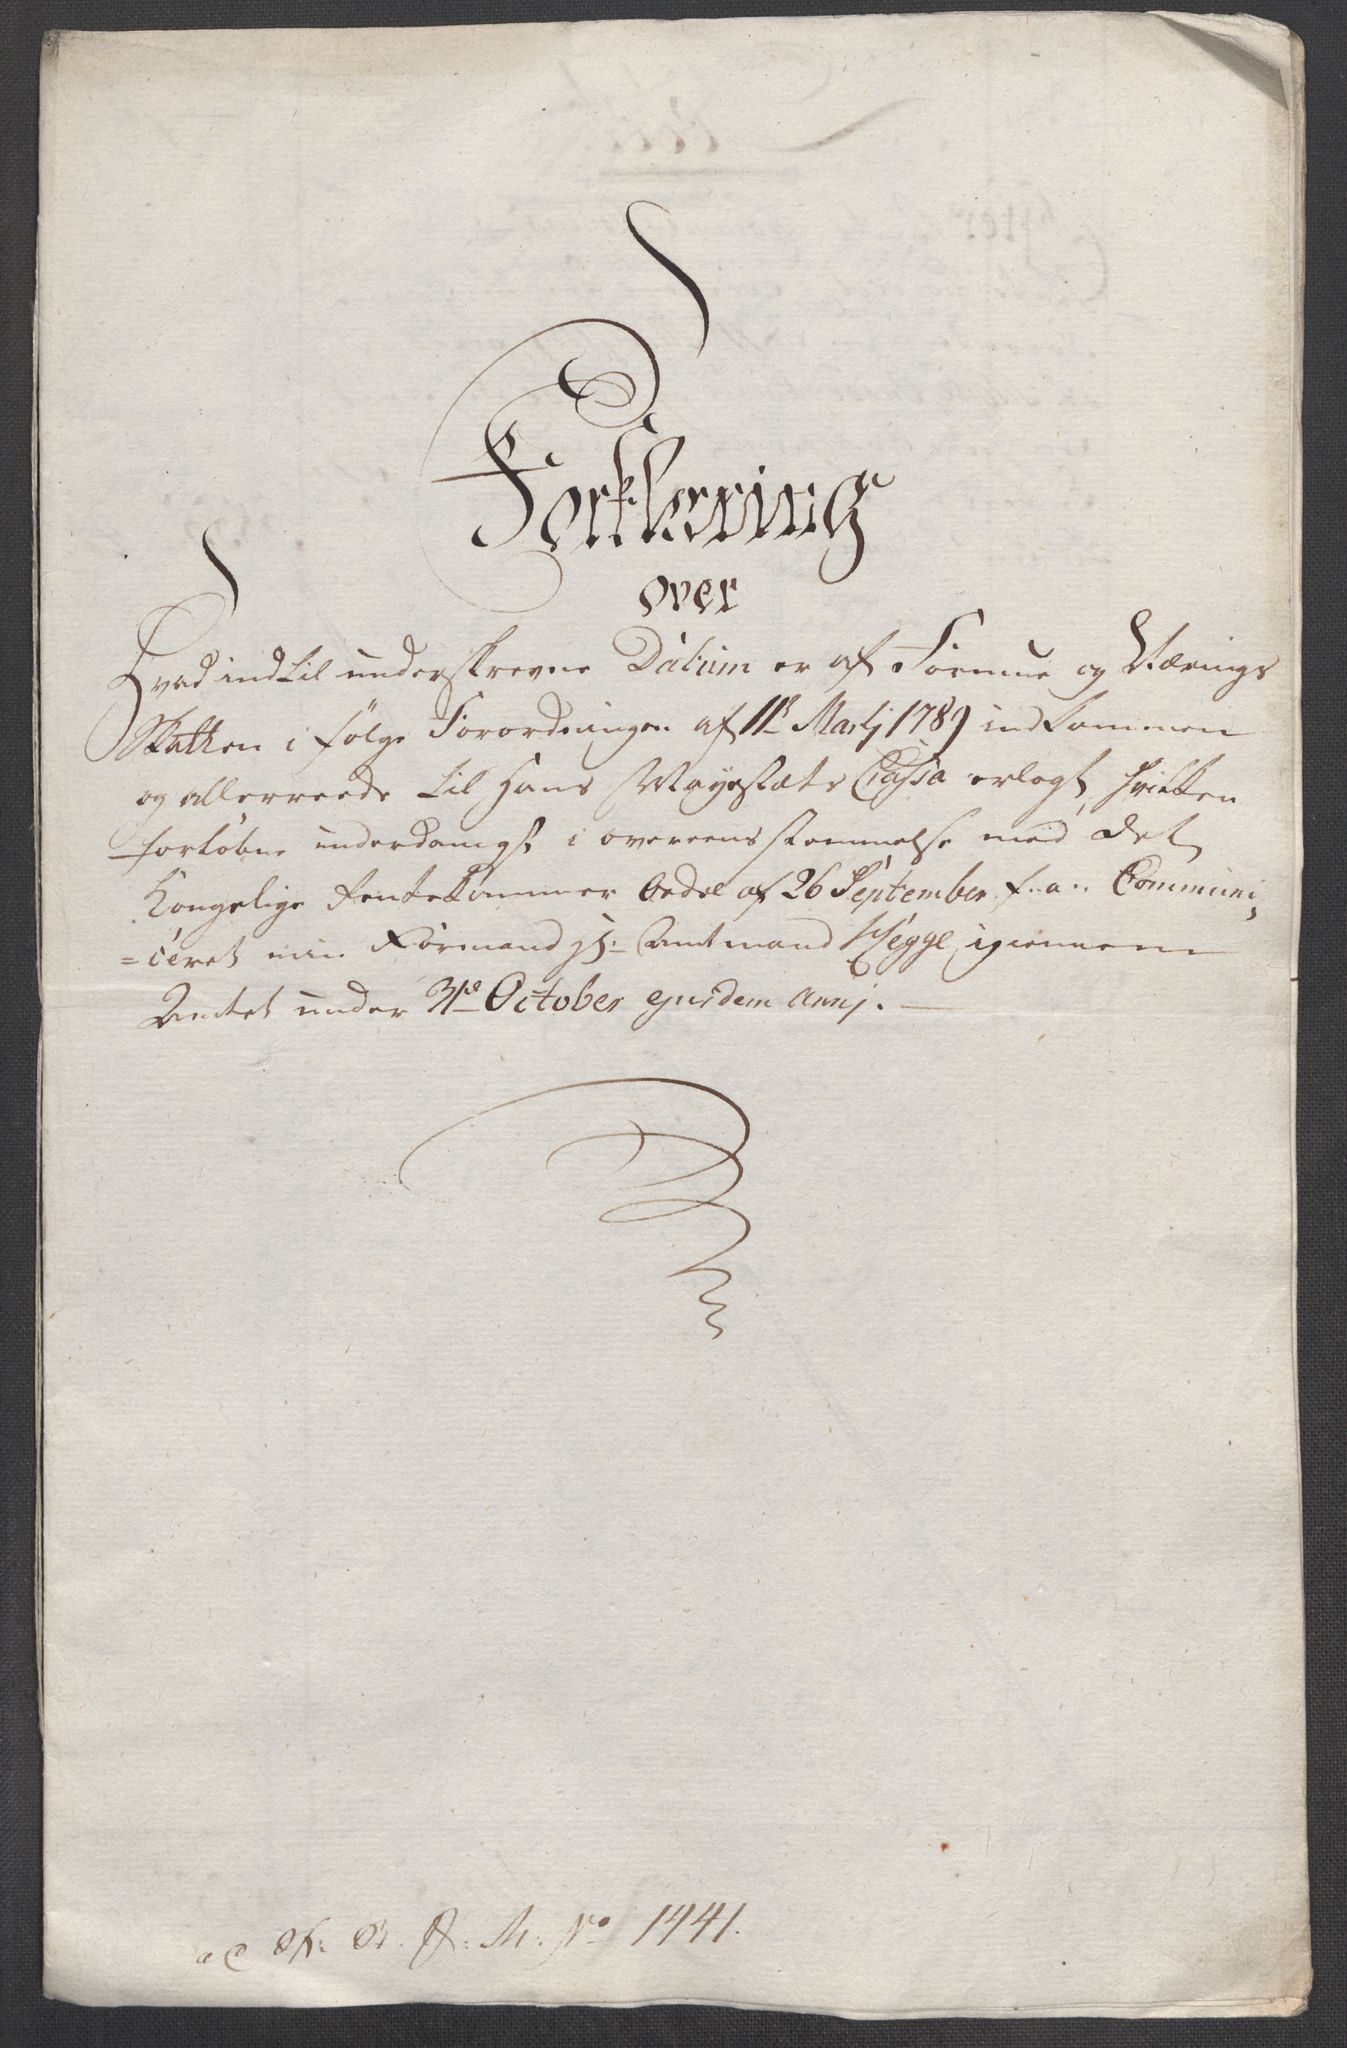 Forklering
over
Hvad indtil underskrevne Datum er af Formue og Nærings
Skatten i følge Forordningen af 11te Martj 1789 indkommen
og allerreede til Hans Mayestæts Cassa erlagt, hvilken
forløbne underdanigst i overeensstemmelse med det
Kongelige Rentekammer Ordre af 26 September f. a. Communi,
=ceret min Formand Hr. Amtmand Hegge igiennem
Amtet under 31te October ejusdem Annj.
ad N: 1441.